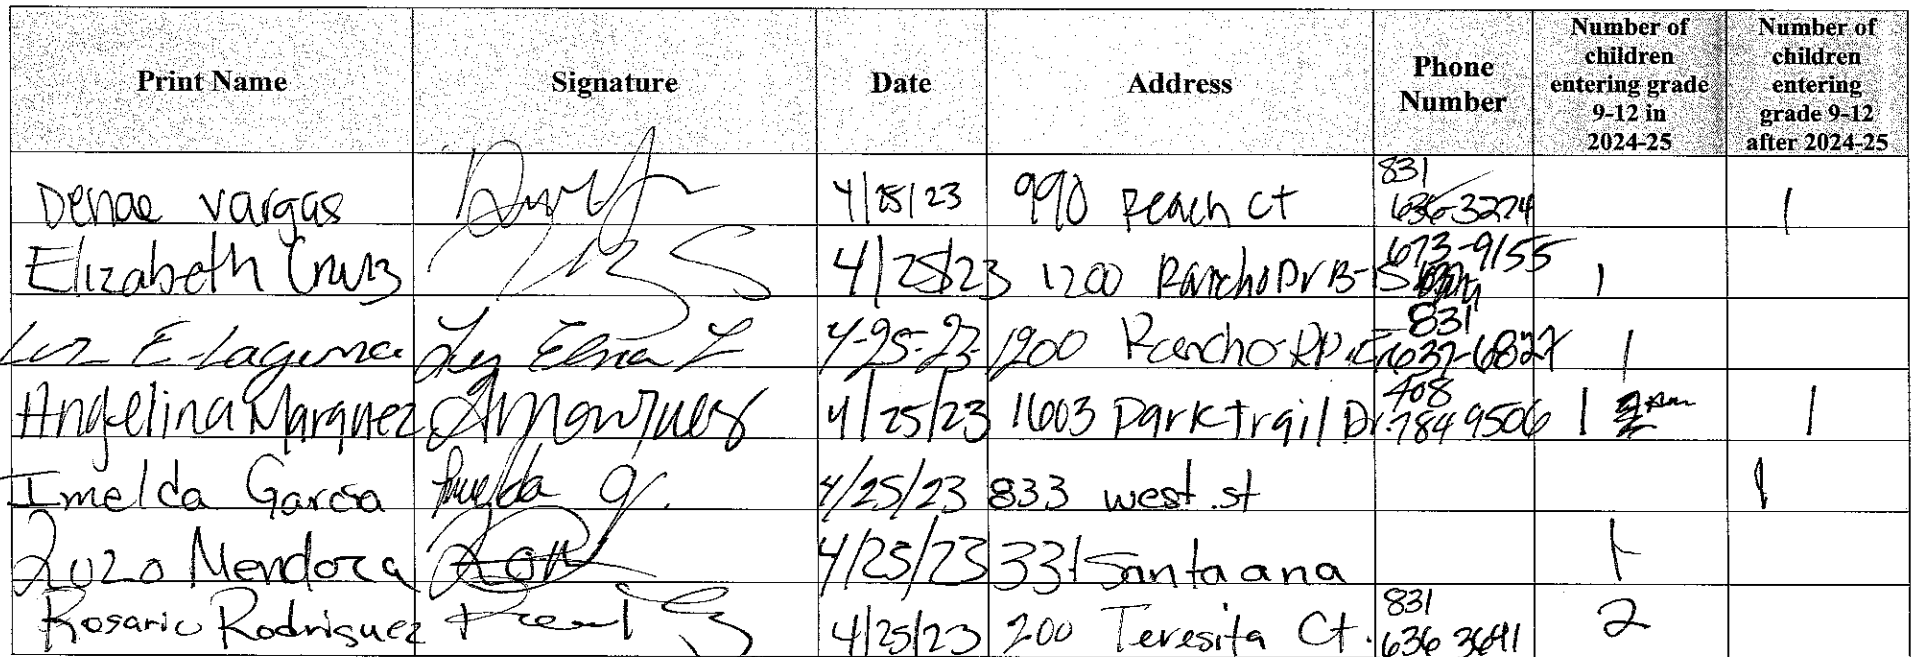 Print Name Signature Date Address Phone Number Number of children entering grade 9-12 in 2024-25 Number of children entering grade 9-12 after 2024-25
Denae Vargas 4/25/23 990 Peach Ct 831 636-3224 1
Elizabeth Cruz 4/25/23 1200 Rancho Dr B- 673-9155 1
Luz E. Laguna Luz Elena L 4-25-23 1200 Rancho 831 637-6827 1
Angelina Marquez AMarquez 4/25/23 1603 Parktrail Dr. 408 784 9506 1 1
Imelda Garcia Imelda g. 4/25/23 833 west.st 1
Mendoza 4/25/23 331 Santa ana 1
Rosario Rodriguez 4/25/23 200 Teresita Ct. 831 636 3641 2